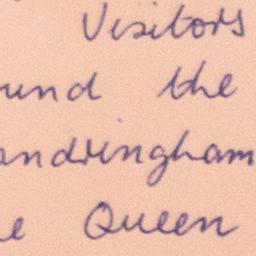 Visitors
und the
andringham
e Queen